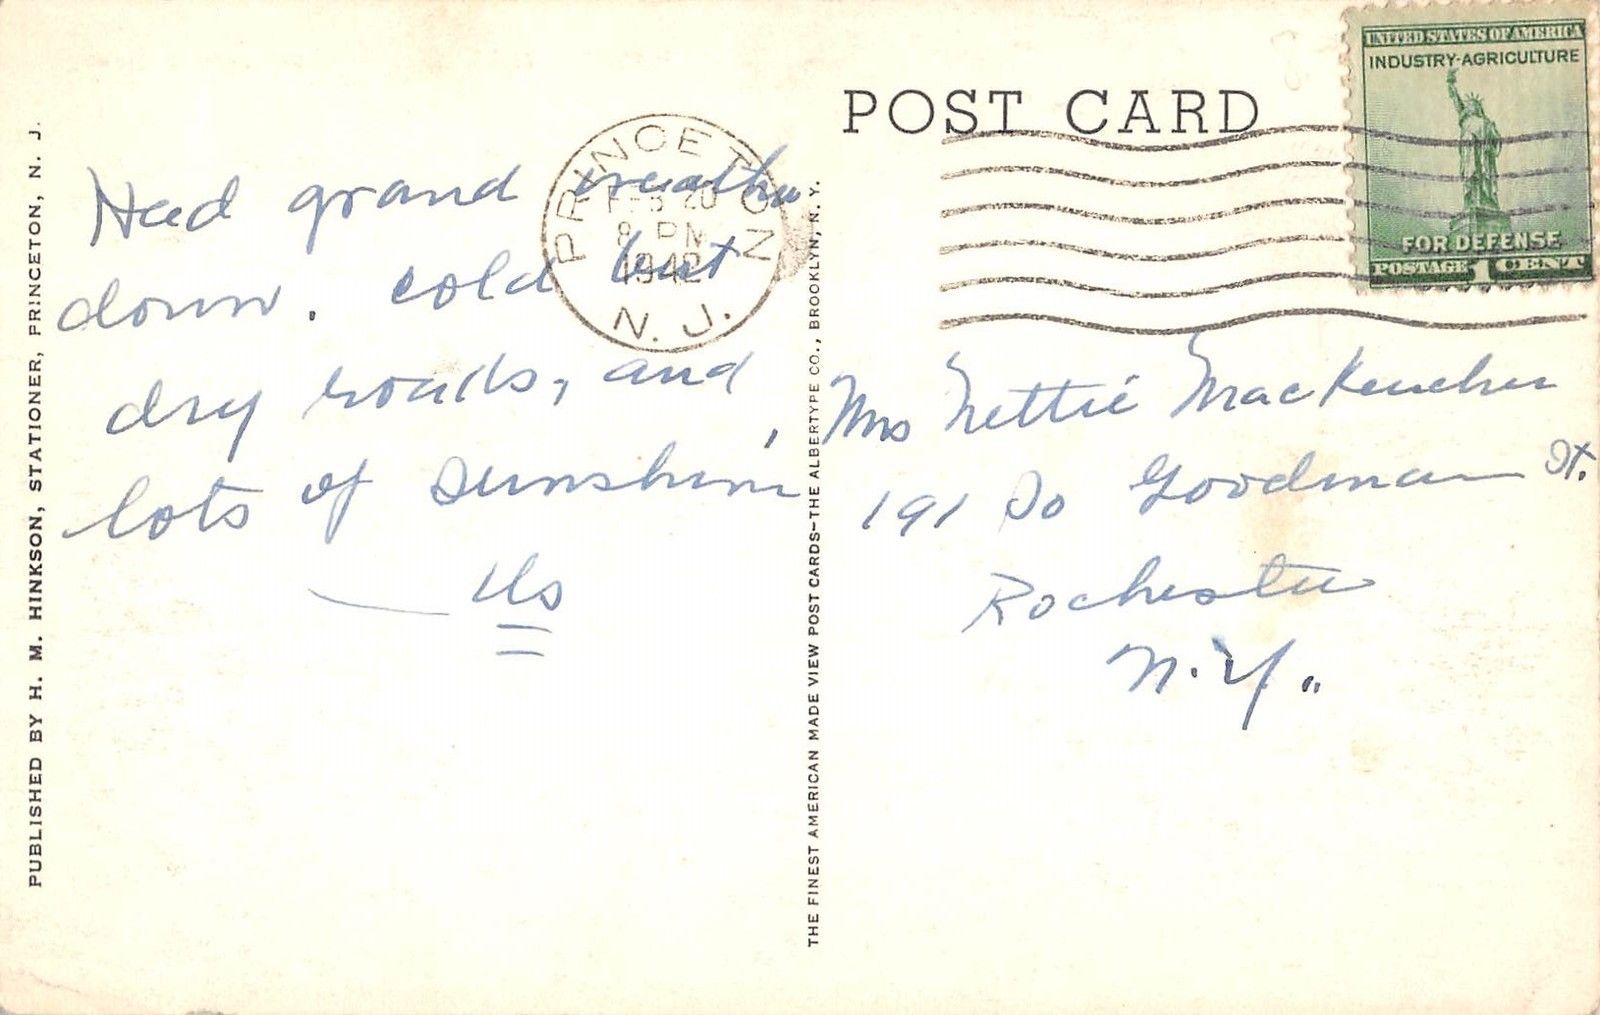 PUBLISHED BY H. M. HINKSON, STATIONER, PRINCETON, N. J.
Had grand weather
down. cold but
dry roads, and
lots of sunshine
Us
PRINCETON
FEB 20
8 PM
1942
N. J.
THE FINEST AMERICAN MADE VIEW POST CARDS-THE ALBERTYPE CO., BROOKLYN, N. Y.
POST CARD
UNITED STATES OF AMERICA
INDUSTRY-AGRICULTURE
FOR DEFENSE
POSTAGE 1 CENT
Mrs Nettie
191 So Goodman St.
Rochester
N.Y.